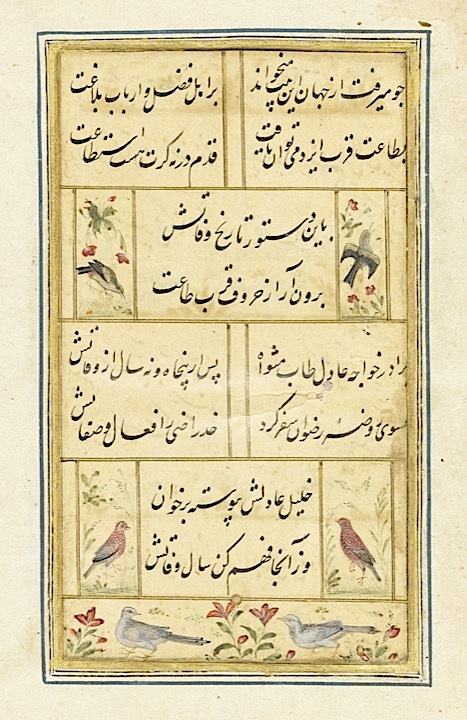 چو میرفت از جهان این بیت میخواند بر اهل فضل و ارباب بلاغت
بطاعت قرب ایزد می توان یافت قدم در نه گرت هست استطاعت
باین دستور تاریخ وفاتش
برون آر از حروف قرب طاعت
برادر خواجه عادل طاب مثواه پس از پنجاه و نه سال از وفاتش
بسوی روضهٔ رضوان سفر کرد خدا راضی ز افعال و صفاتش
خلیل عادلش پیوسته برخوان
وز آنجا فهم کن سال وفاتش